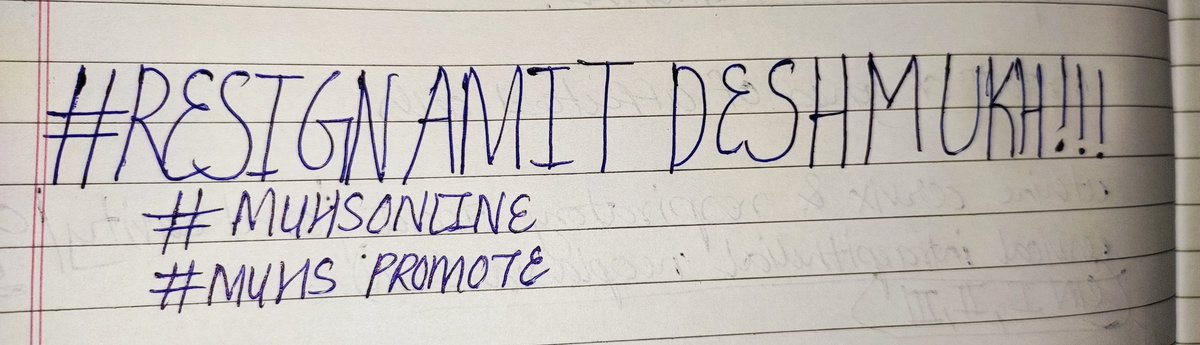 #RESIGN AMIT DESHMUKH!!!
#MUHSONLINE
#MUHS PROMOTE